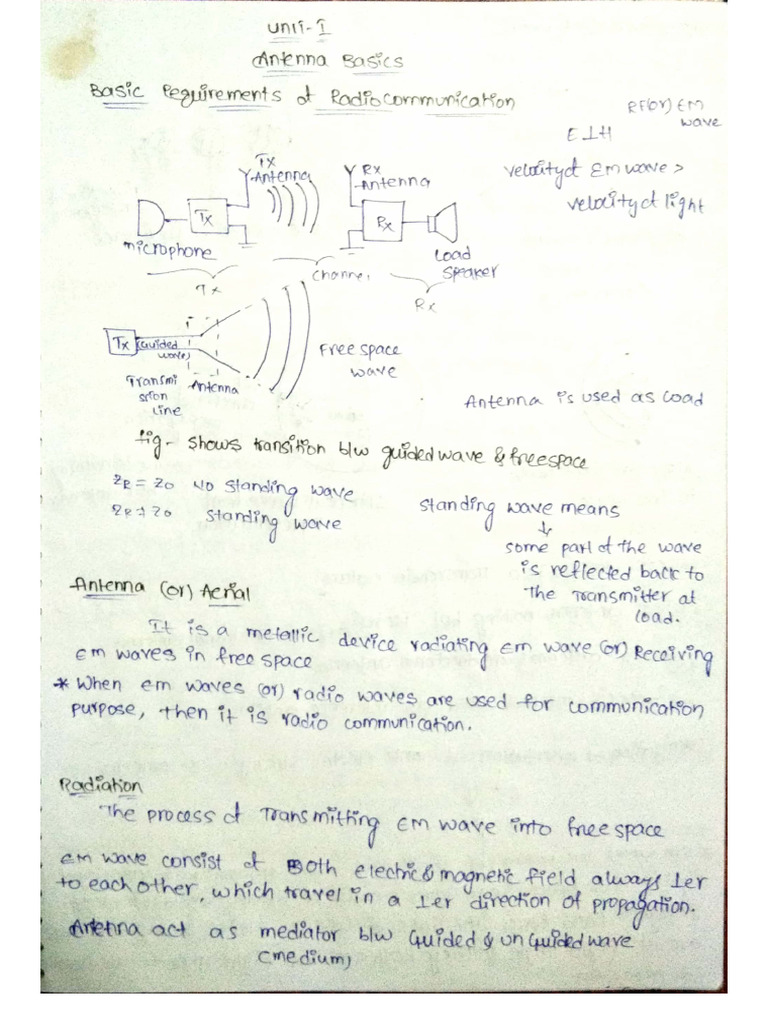 Unit-I
Antenna Basics
Basic Requirements of Radio communication
RF(or) EM
wave
E⊥H
velocity of EM wave >
velocity of light
Tx
Antenna
Rx
Antenna
Tx
Rx
microphone
Load
speaker
Channel
Tx
Rx
Tx
(Guided
wave)
Free space
wave
Transmi
ssion
line
Antenna
Antenna is used as Load
fig- shows transition b/w guided wave & freespace
ZR = Z0 No standing wave
ZR ≠ Z0 standing wave
standing wave means
↓
some part of the wave
is reflected back to
the Transmitter at
load.
Antenna (or) Aerial
It is a metallic device radiating em wave (or) Receiving
em waves in free space
* When em waves (or) radio waves are used for communication
purpose, then it is radio communication.
Radiation
The process of Transmitting EM wave into free space
EM wave consist of Both electric & magnetic field always ⊥er
to each other, which travel in a ⊥er direction of propagation.
Antenna act as mediator b/w Guided & unGuided wave
(medium)